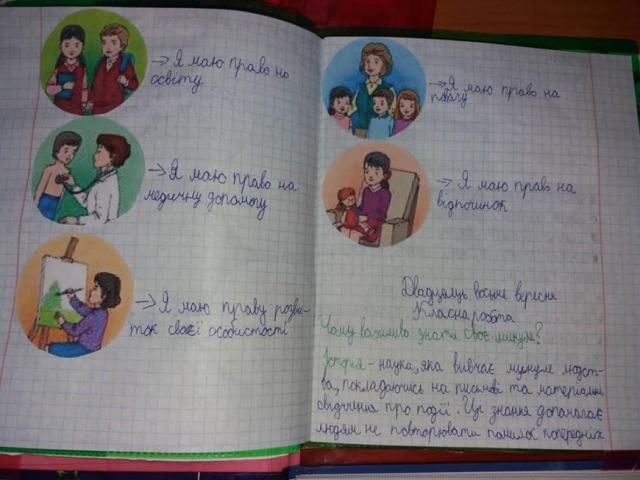 → Я маю право на
освіту
→ Я маю право на
медичну допомогу
→ Я маю праву розви-
ток своєї особистості
→ Я маю право на
повагу
→ Я маю право на
відпочинок
Двадцять восьме вересня
Класна робота
Чому важливо знати своє минуле?
Історія - наука, яка вивчає минуле людст-
ва, покладаючись на письмові та матеріальні
свідчення про події. Ці знання допомагає
людям не повторювати помилок попередніх